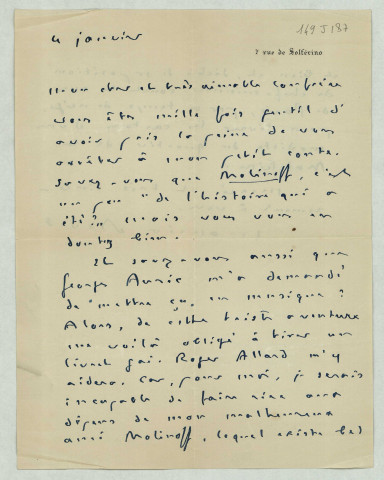 149 J 187
4 janvier
7 rue de Solférino
mon cher et très aimable confrère
vous êtes mille fois gentil d'
avoir pris la peine de vous
arrêter à mon petit conte.
Savez-vous que Molinoff, c'est
un peu "de l'histoire qui a
été"? mais vous vous en
doutez bien.
Et savez-vous aussi que
George Auric m'a demandé
de "mettre ça, en musique"?
Alors, de cette triste aventure
me voilà obligé à tirer un
livret gai. Roger Allard m'y
aidera. Car, pour moi, je serais
incapable de faire rire aux
dépens de mon malheureux
ami Molinoff, lequel existe bel